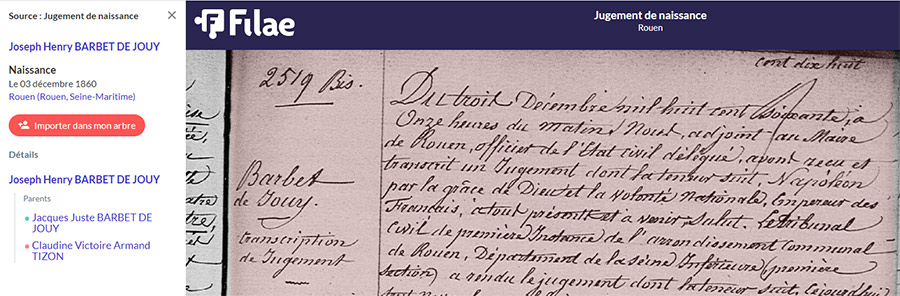 Source : Jugement de naissance
Joseph Henry BARBET DE JOUY
Naissance
Le 03 décembre 1860
Rouen (Rouen, Seine-Maritime)
Importer dans mon arbre
Détails
Joseph Henry BARBET DE JOUY
Parents
Jacques Juste BARBET DE
JOUY
Claudine Victoire Armand
TIZON
Filae
Jugement de naissance
Rouen
cent dix huit
2519 Bis.
Barbet
de Jouy.
transcription
de Jugement
Du trois Décembre mil huit cent soixante, à
Onze heures du matin, Nous, adjoint au Maire
de Rouen, officier de l'Etat civil délégué, avons reçu et
transcrit un Jugement dont la teneur suit. Napoléon
par la grâce de Dieu et la volonté Nationale, Empereur des
Français, à tous présents et à venir, Salut. Le tribunal
civil de première Instance de l'arrondissement communal
de Rouen, Département de la Seine Inférieure (première
section) a rendu le jugement dont la teneur suit, Cejourd'hui